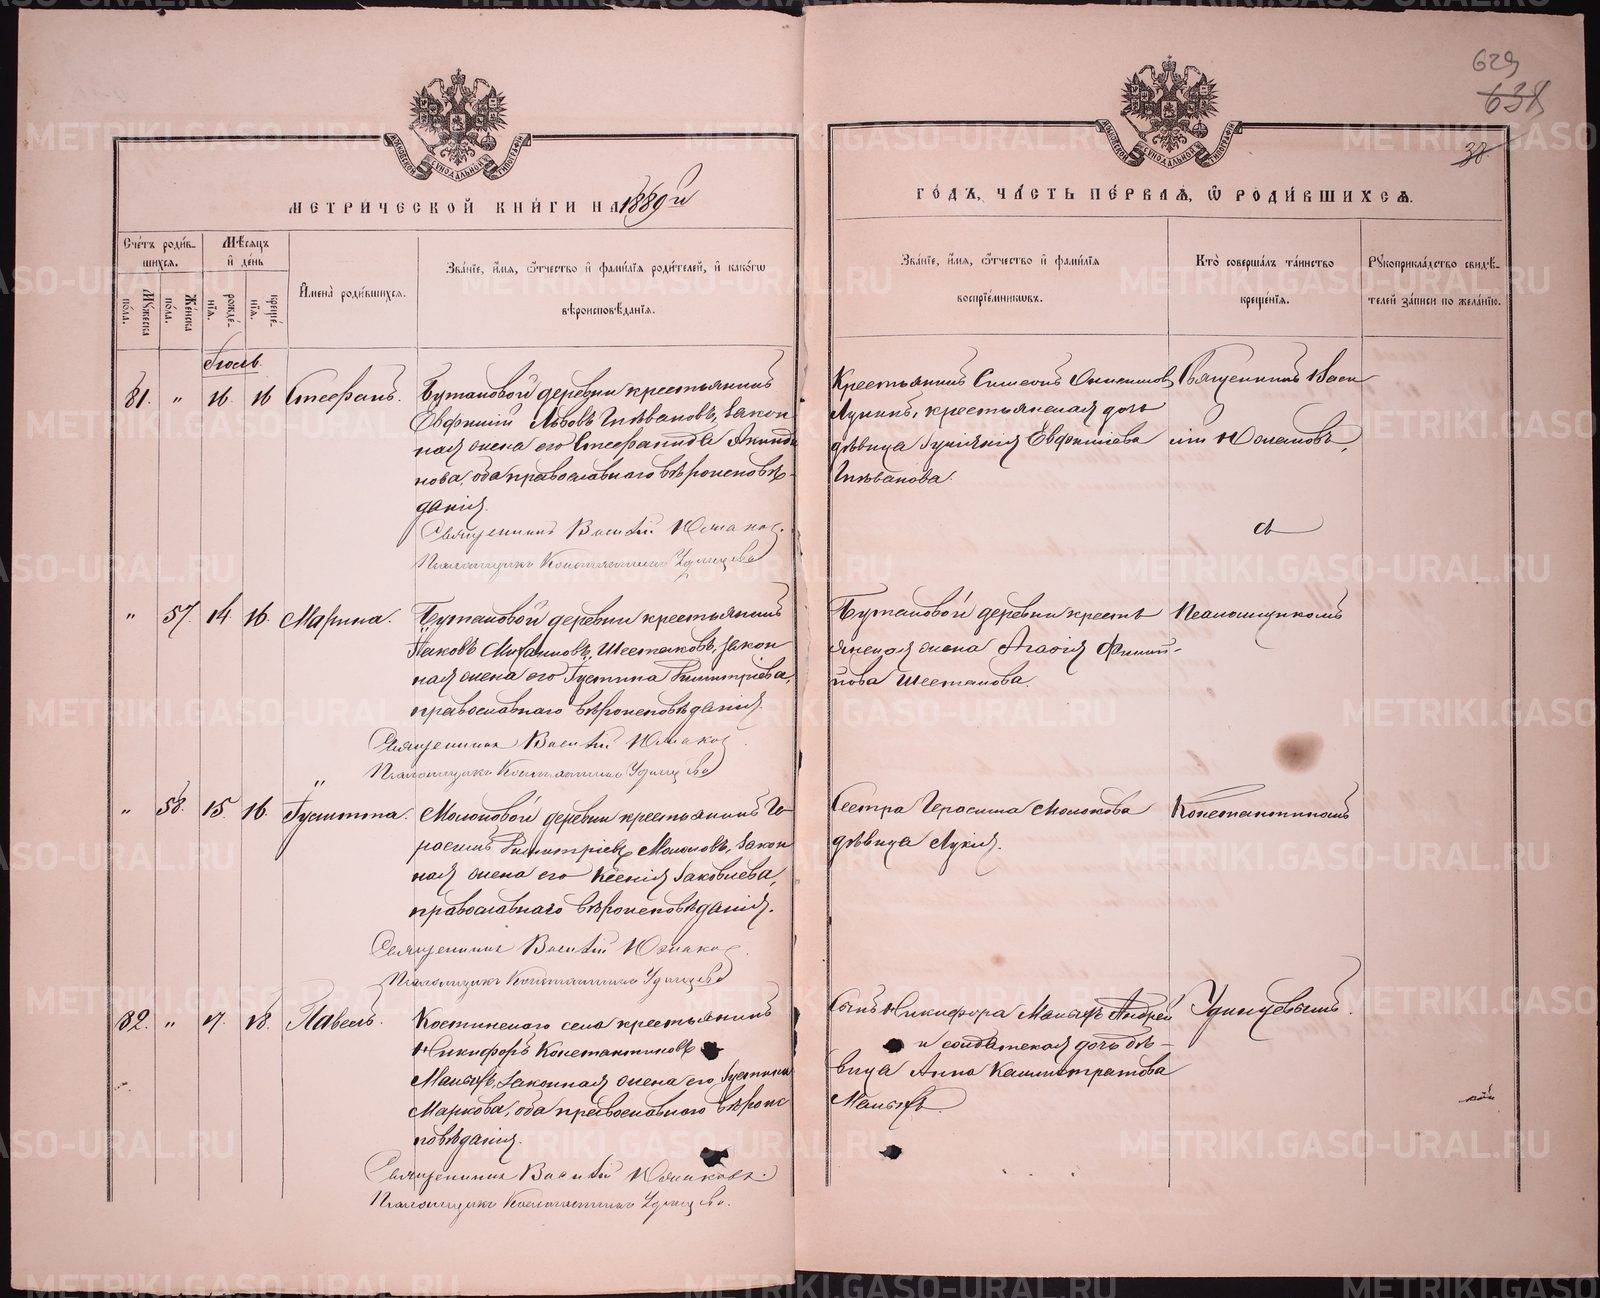 629
638
38.
МЕТРИЧЕСКОЙ КНИГИ НА 1889й
ГОДЪ, ЧАСТЬ ПЕРВАЯ, Ѡ РОДИВШИХСЯ.
Счетъ родив-
шихся.
Мѣсяцъ
и день
Мужеска
пола.
Женска
пола.
рожде-
нія.
креще-
нія.
Имена родившихся.
Званіе, имя, отчество и фамилія родителей, и какогѡ
вѣроисповѣданія.
Званіе, имя, отчество и фамилія
воспріемниковъ.
Кто совершалъ таинство
крещенія.
Рукоприкладство свидѣ-
телей записи по желанію.
Іюль.
81. " 16 16 Стефанъ.
деревни крестьянинъ
Евфимій Львовъ закон
ная жена его Стефанида
нова, оба православнаго вѣроисповѣ-
данія.
Священникъ Василій Юшковъ.
Псаломщикъ Константинъ Удинцевъ
Крестьянинъ Симеонъ
крестьянская дочь
дѣвица Евфиміева
Священникъ Васи
лій
" 57. 14. 16. Марина.
деревни крестьянинъ
Іаковъ Михаиловъ Шестаковъ, закон
ная жена его Іустина Димитріева,
православнаго вѣроисповѣданія.
Священникъ Василій
Псаломщикъ Константинъ Удинцевъ
деревни кресть
янская жена Агафія Филип-
пова Шестакова.
Псаломщикомъ
" 58. 15. 16. Іулитта.
Молоковой деревни крестьянинъ Ге-
расимъ Димитріевъ Молоковъ, закон
ная жена его Ксенія Іаковлева,
православнаго вѣроисповѣданія.
Священникъ Василій
Псаломщикъ Константинъ Удинцевъ
Сестра Герасима Молокова
дѣвица Лукія.
Константиномъ
82. " 17. 18. Павелъ.
Костинскаго села крестьянинъ
Никифоръ Константиновъ
законная жена его, Іустина
Маркова, оба православнаго вѣроис
повѣданія.
Священникъ Василій
Псаломщикъ Константинъ Удинцевъ.
Сынъ Никифора Андрей
и солдатская дочь дѣ-
вица Анна Каллистратова
Удинцевымъ.
METRIKI.GASO-URAL.RU